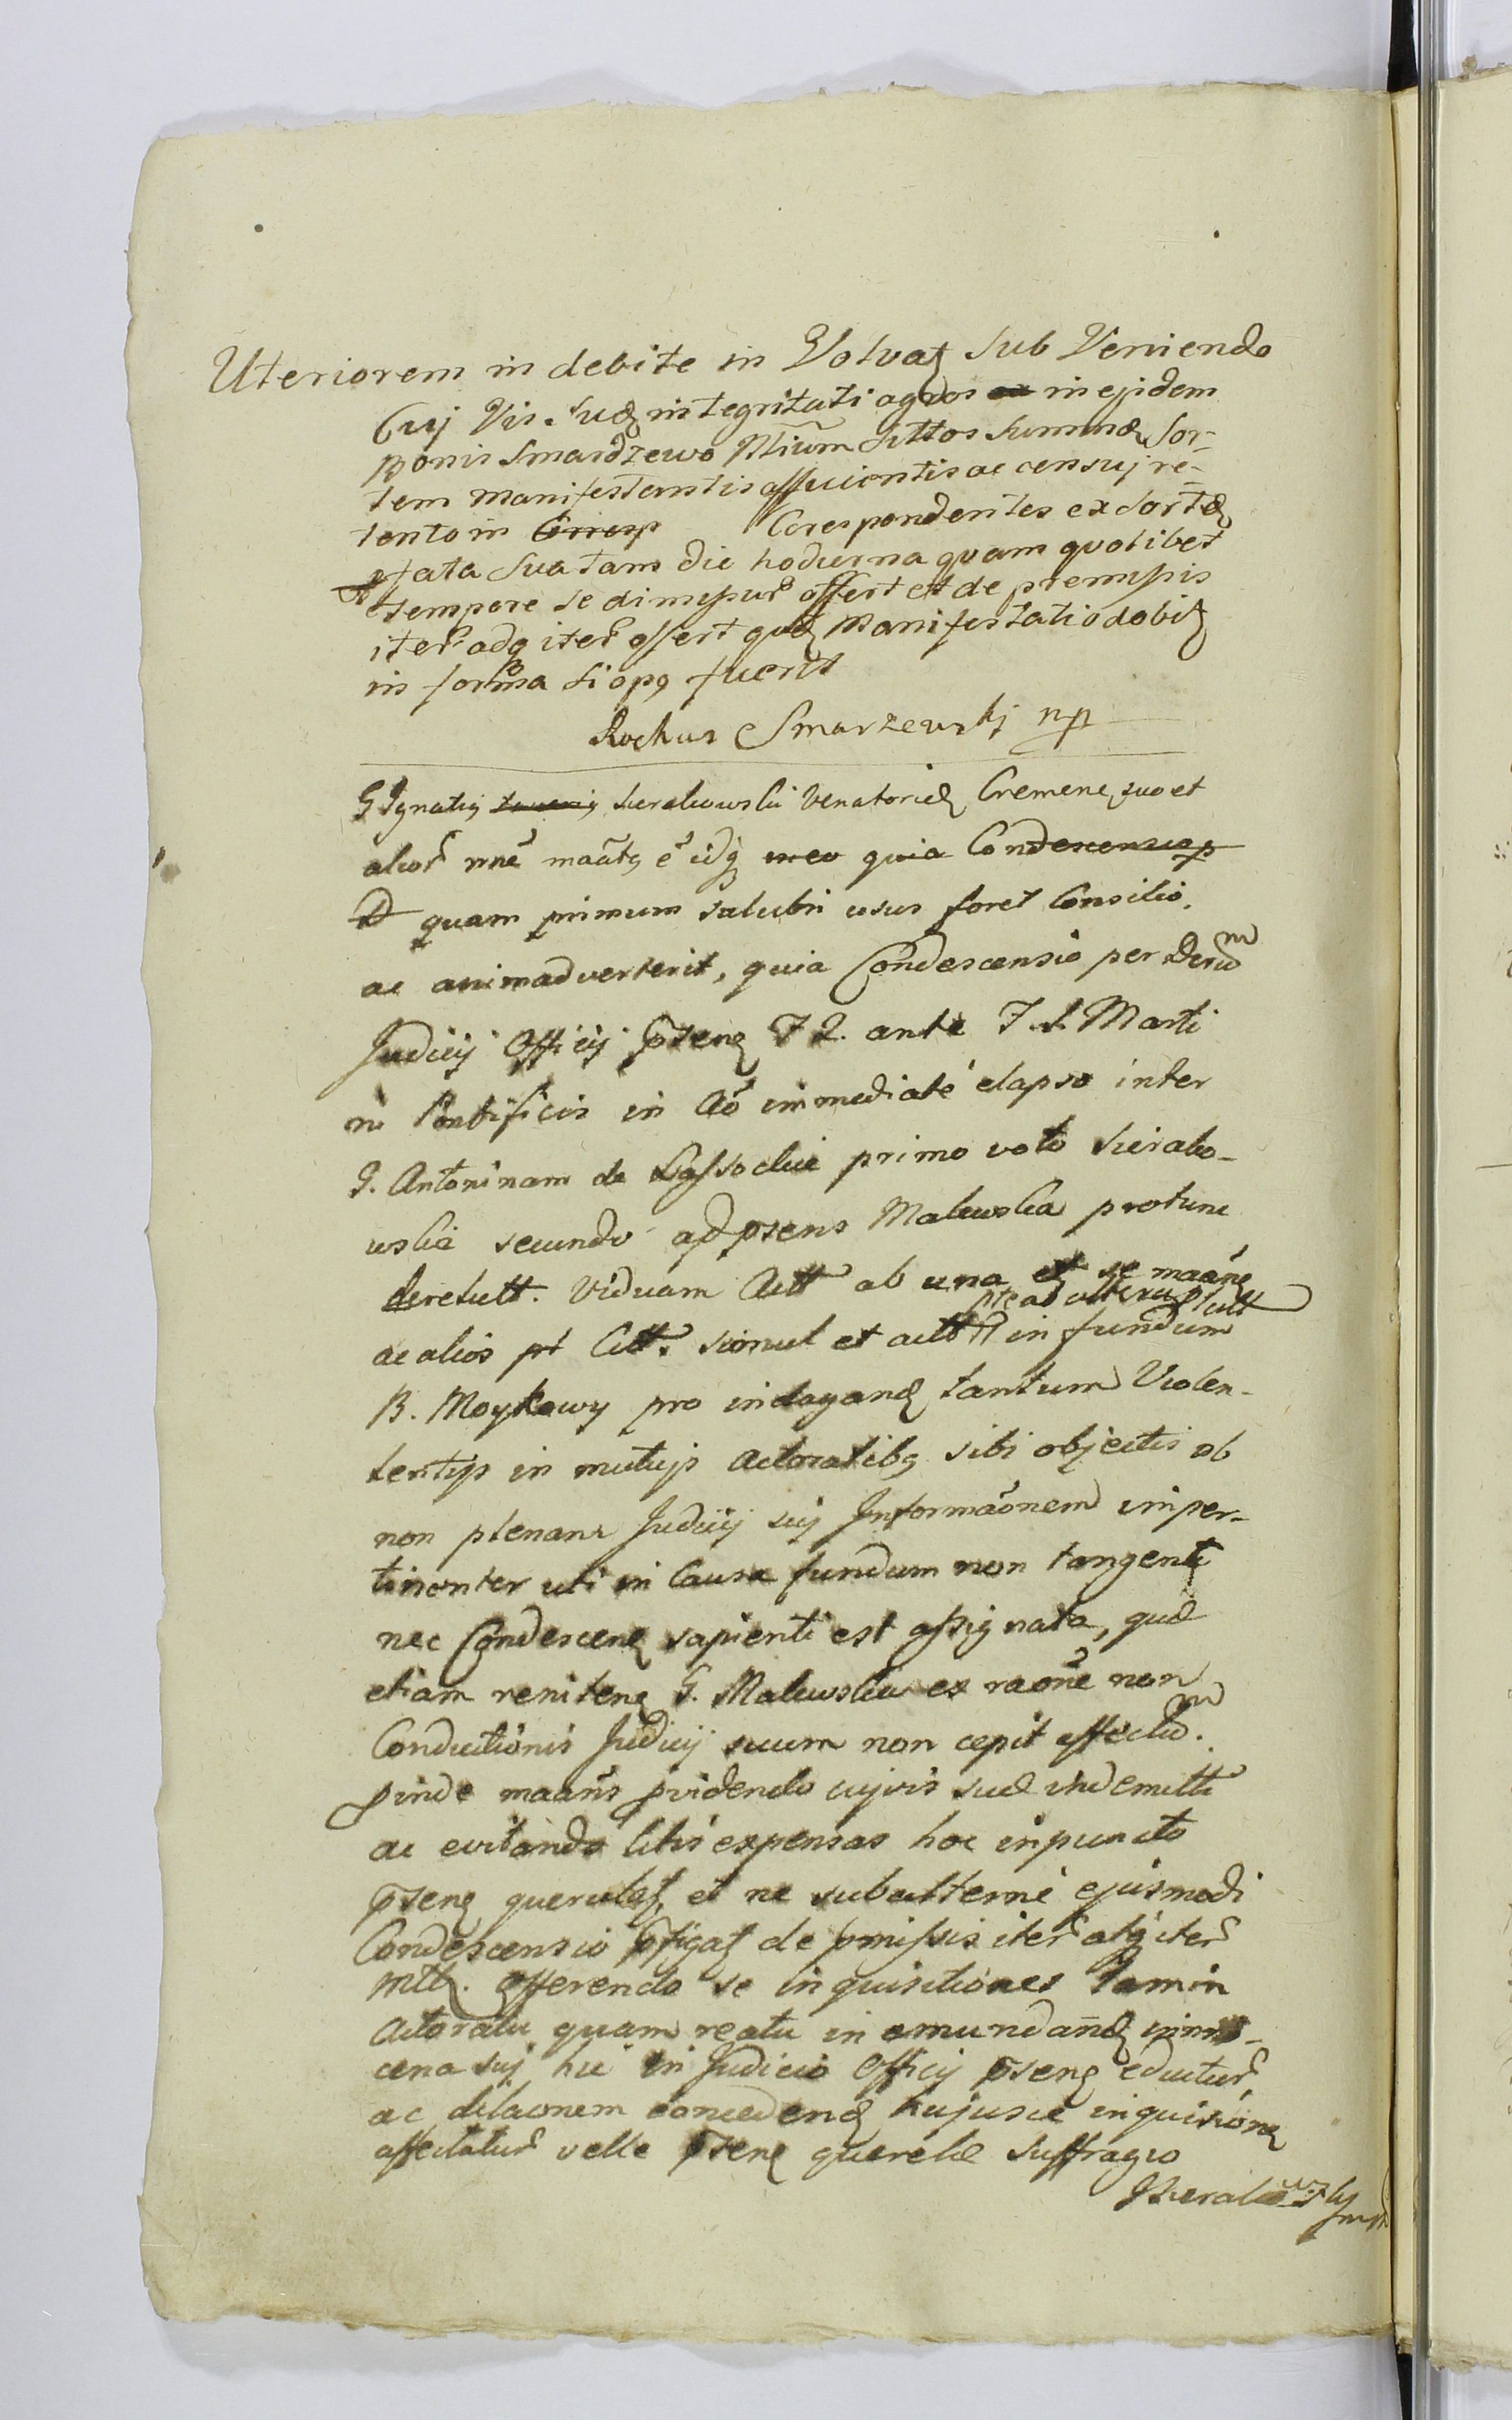 Uteriorem in debite in Volvat Sub Veniendo
Cuj Vis. Suæ integritati agros in ejidem
Bonis Smardzewo Sittos Summæ Sor-
tem Manifestantis afficientis ac censuj re-
tento in Corresp Corespondentes ex Sortæ
ptata Sua tam die hodierna quam quolibet
tempore se dimissur offert et de premissis
iter adq iter offert quæ Manifestatio dabit
in forma si opq fuerit
Rochus Smarzewskj mp
G Ignatiq Sierakowski Venatoridæ Cremene suo et
alior nne maatq e idq in eo quia Condescensio p
D quam primum salubri usus foret Consilio,
ac animadverterit, quia Condescensio per Decrum
Judicij Officij psens F 2. ante F. S. Marti
ni Pontificis in Ao immediaté elapso inter
G. Antoninam de Lassockie primo voto Sierako-
wska secundo ad psens Malewska protunc
derelutt. Viduam Actt ab una et se maane
pte ab altera pt actt
ac alios pt Citt. simul et actt in fundum
B. Moykowy pro indagand tantum Violen-
tentijs in mutujs Actoratibq sibi objectis ob
non plenam Judicij sui Informaonem imper-
tinenter uti in Causa fundum non tangenti
nec Condescenæ sapienti est assignata, quæ
etiam renitene G. Malewska ex raone non
Conductionis Judicij suum non cepit effectum.
pinde maans pvidendo cujvis suæ indemitti
ac evitando litis expensas hoc in puncto
psens querulat, et ne subalterné ejusmodi
Condescensio pfigat de pmissis iter atq iter
mtt. Offerendo se inquisitiones tam in
Actoratu quam reatu in emundanæ inno-
cena suj hic in Judicio Officij psens eductur
ac dilaonem concedendæ hujusce inquisitione
affectatur velle psens querelæ suffragio
JSierakowsky mp